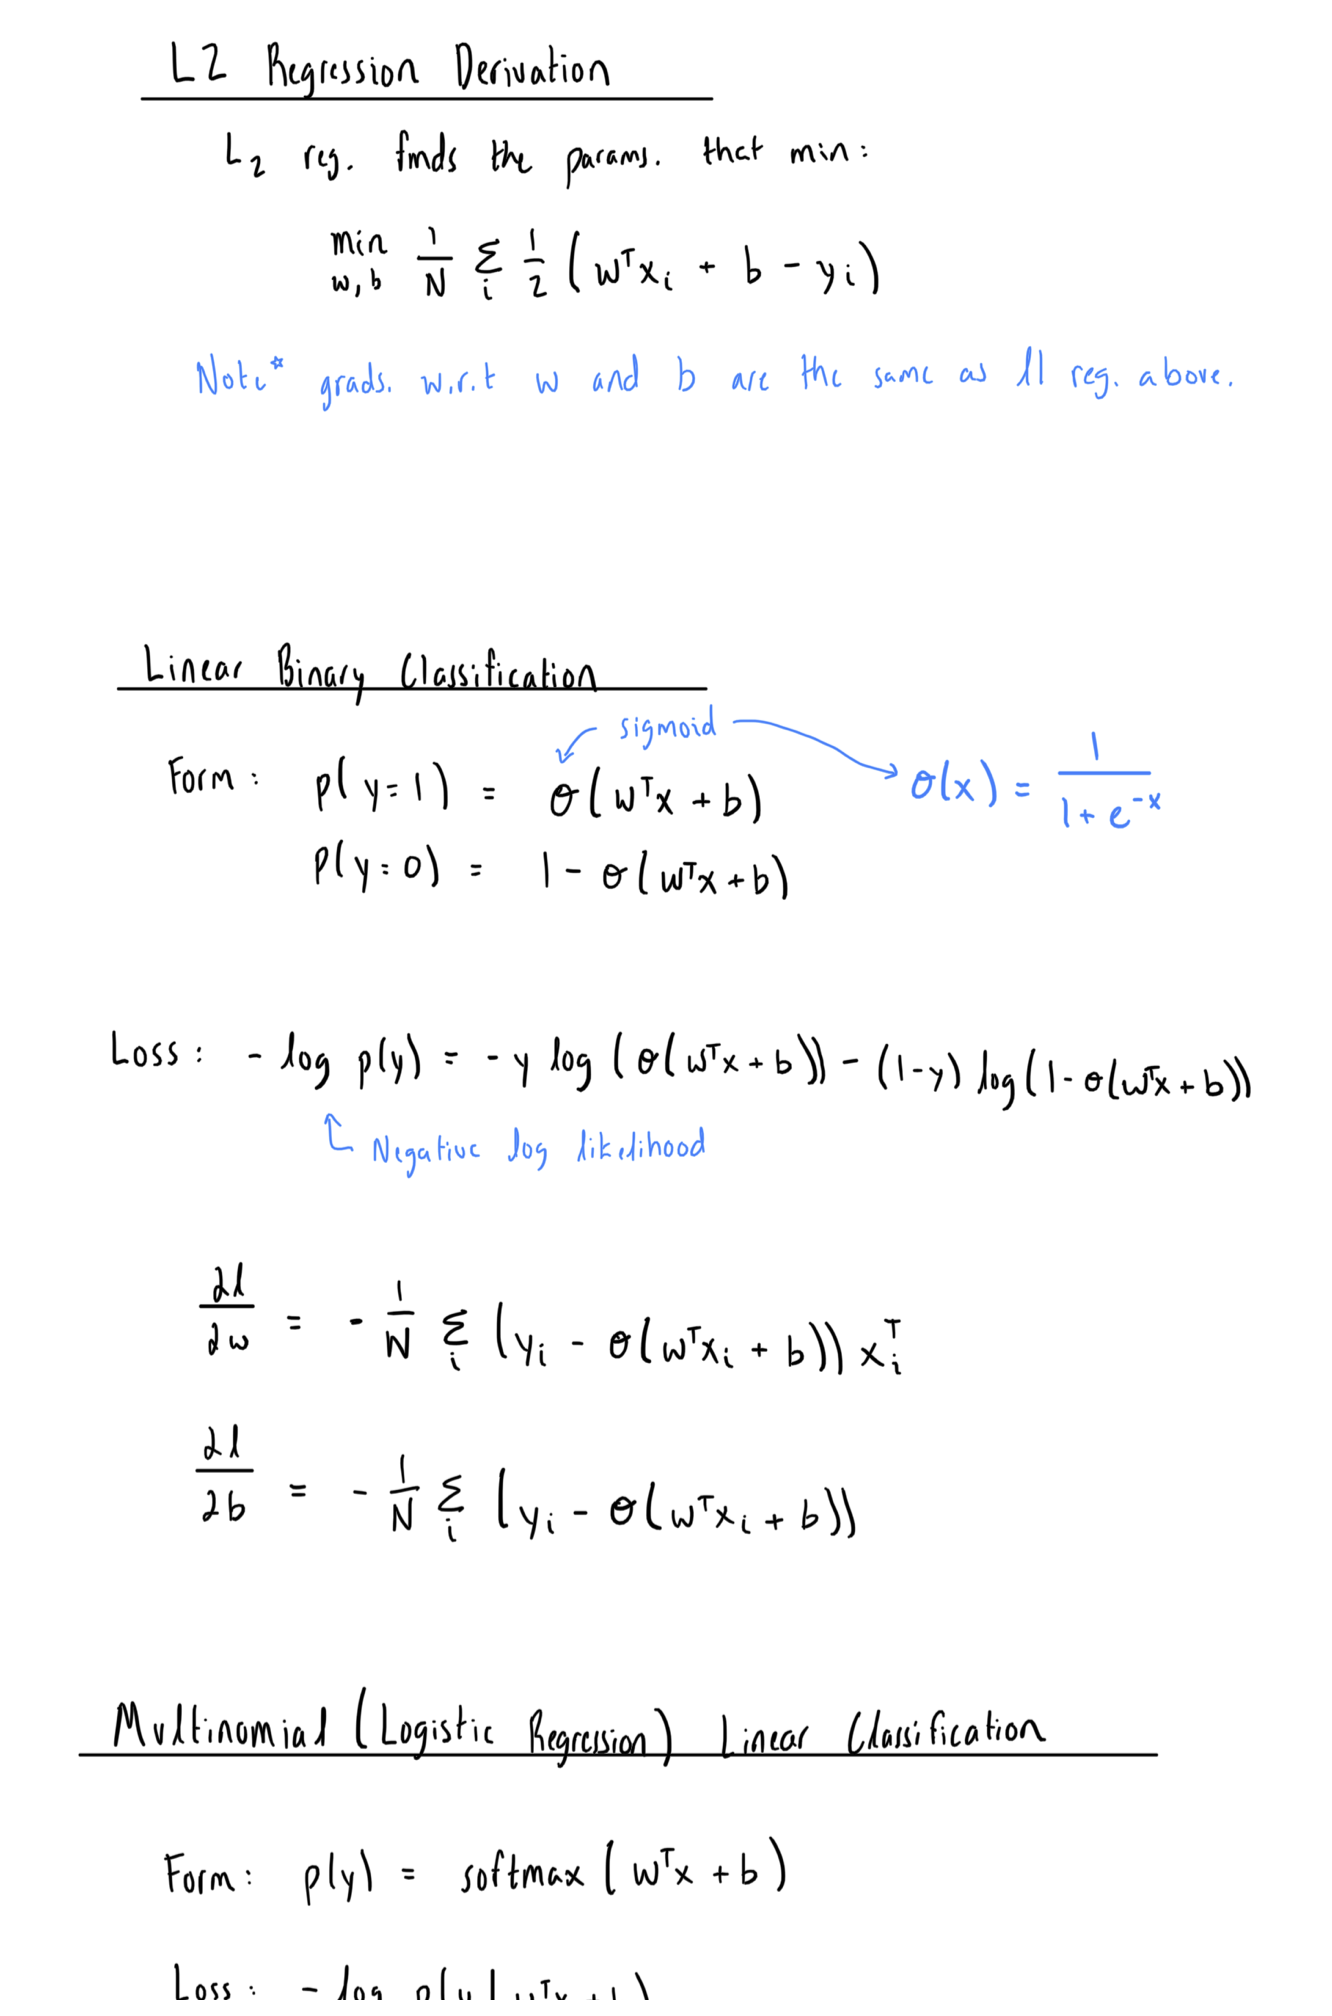 L2 Regression Derivation
L₂ reg. finds the params. that min:
min w,b 1/N Σᵢ 1/2 (wᵀxᵢ + b - yᵢ)
Note* grads. w.r.t w and b are the same as l1 reg. above.
Linear Binary Classification
sigmoid
Form: p(y=1) = σ(wᵀx + b)
σ(x) = 1/(1 + e^(-x))
p(y=0) = 1 - σ(wᵀx + b)
Loss: - log p(y) = - y log (σ(wᵀx + b)) - (1-y) log(1 - σ(wᵀx + b))
Negative log likelihood
∂l/∂w = - 1/N Σᵢ (yᵢ - σ(wᵀxᵢ + b)) xᵢᵀ
∂l/∂b = - 1/N Σᵢ (yᵢ - σ(wᵀxᵢ + b))
Multinomial (Logistic Regression) Linear Classification
Form: p(y) = softmax (wᵀx + b)
Loss: - log p(y | wᵀx + b)